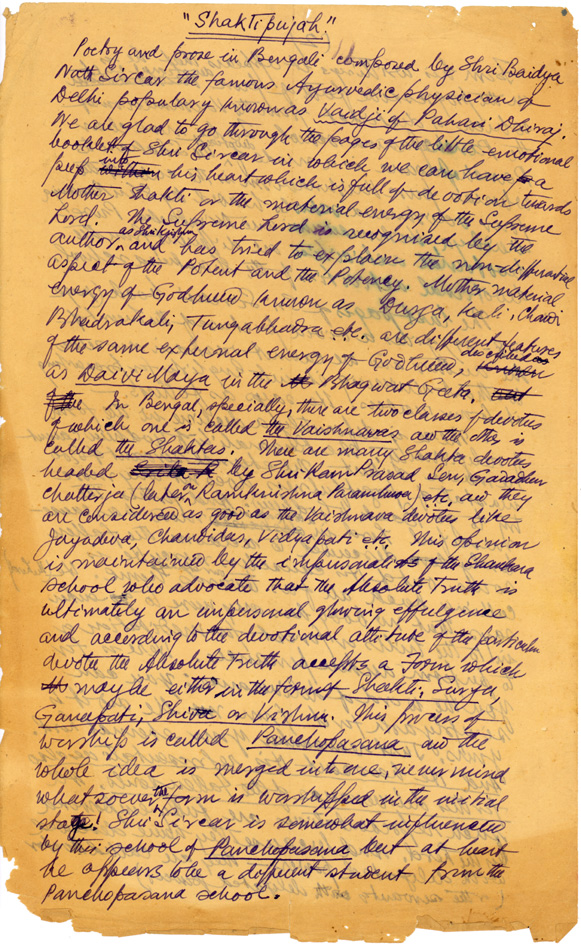 "Shaktipujah."
Poetry and prose in Bengali composed by Shri Baidya
Nath Sircar the famous Ayurvedic physician of
Delhi popularly known as Vaidji of Pahari Dhiraj.
We are glad to go through the pages of the little emotional
booklet of Shri Sircar in which we can have a
peep into his heart which is full of devotion towards
Mother Shakti or the material energy of the Supreme
Lord. The Supreme Lord is recognised by the
author as Shri Krishna and has tried to explain the non-differential
aspect of the Potent and the Potency. Mother material
energy of Godhead known as Durga, Kali, Chandi
Bhadrakali, Tungabhadra etc. are different features
of the same external energy of Godhead, described as
as Daivi Maya in the Bhagwat Geeta.
In Bengal, specially, there are two classes of devotes
of which one is called the Vaishnavas and the other is
called the Shaktas. There are many Shakta devotes
headed by Shri Ram Prasad Sen, Gadadhar
Chatterjee (later on Ramkrishna Paramhansa) etc, and they
are considered as good as the Vaishnava devotes like
Jayadeva, Chandidas, Vidyapati etc. This opinion
is maintained by the impersonalists of the Shankara
school who advocate that the Absolute Truth is
ultimately an impersonal glowing effulgence
and according to the devotional attitude of the particular
devote the Absolute Truth accepts a Form which
may be either in the form of Shakti, Surya,
Ganapati, Shiva or Vishnu. This process of
worship is called Panchopasana and the
whole idea is merged into one, never mind
what soever the form is worshipped in the initial
stage! Shri Sircar is somewhat influenced
by this school of Panchopasana but at heart
he appears to be a different student from the
Panchopasana school.